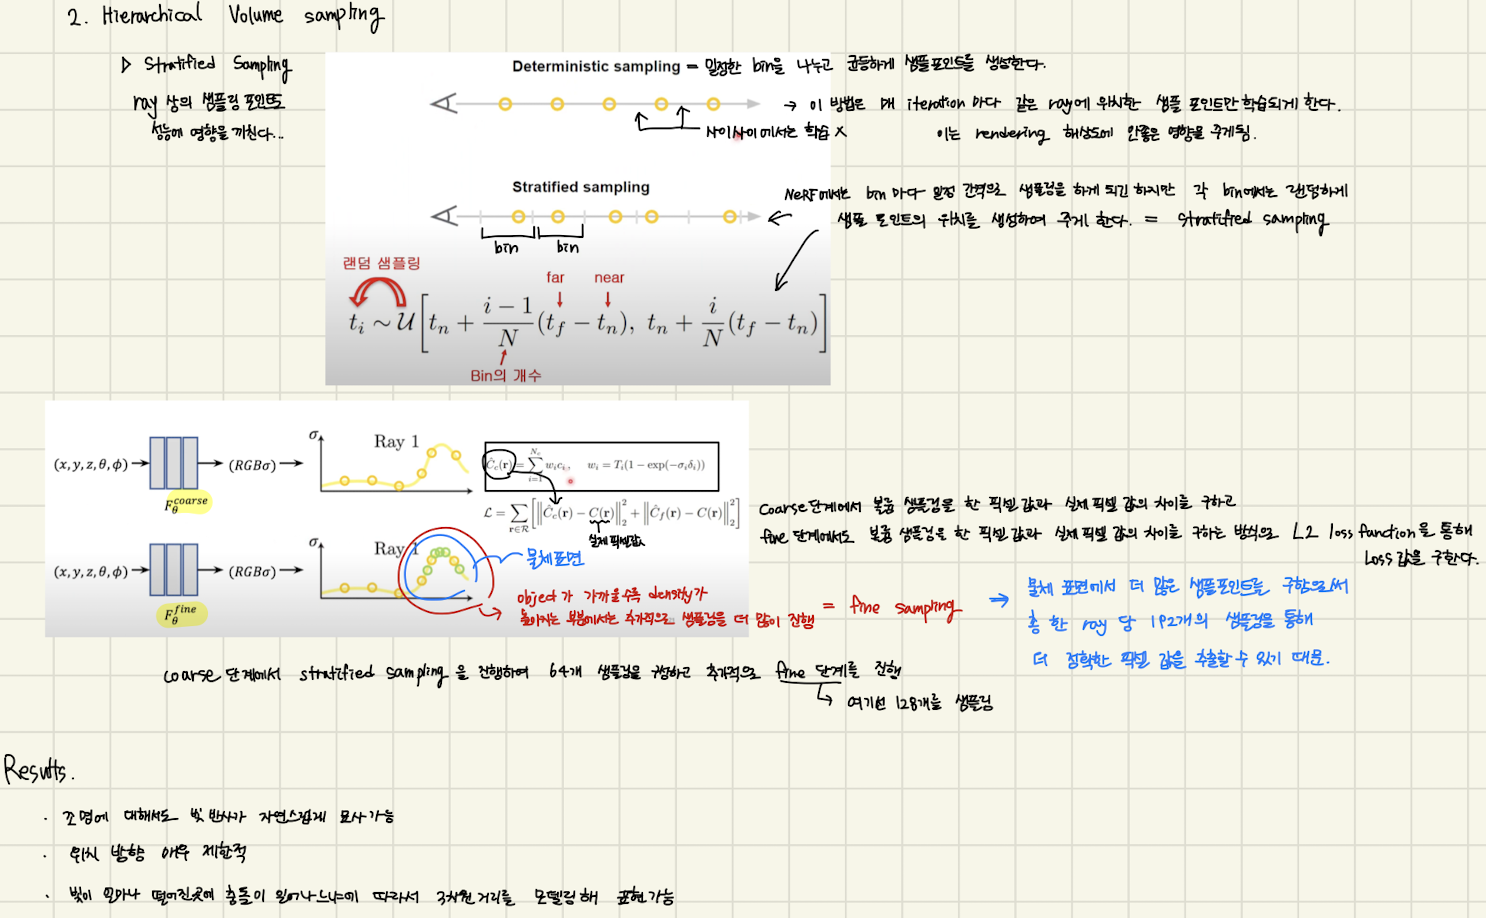 2. Hierarchical Volume sampling
▷ Stratified Sampling
ray 상의 샘플링 포인트도
성능에 영향을 끼친다...
Deterministic sampling = 일정한 bin을 나누고 균등하게 샘플포인트를 생성한다.
→ 이 방법은 매 iteration 마다 같은 ray에 위치한 샘플 포인트만 학습되게 한다.
사이사이에서는 학습 X
이는 rendering 해상도에 안좋은 영향을 주게됨.
Stratified sampling
NeRF에서는 bin 마다 일정 간격으로 샘플링을 하게 되긴 하지만 각 bin에서는 랜덤하게
샘플 포인트의 위치를 생성하여 주게 한다. = Stratified sampling
bin bin
랜덤 샘플링
far near
t_i ~ U[t_n + (i − 1)/N (t_f − t_n), t_n + i/N (t_f − t_n)]
Bin의 개수
(x,y,z,θ,ϕ) → (RGBσ) →
F_θ^coarse
σ
Ray 1
Ĉ_c(r) = ∑_{i=1}^{N_c} w_i c_i, w_i = T_i(1 − exp(−σ_i δ_i))
L = ∑_{r∈R} [‖Ĉ_c(r) − C(r)‖₂² + ‖Ĉ_f(r) − C(r)‖₂²]
실제 픽셀값
Coarse 단계에서 볼륨 샘플링을 한 픽셀 값과 실제 픽셀 값의 차이를 구하고
fine 단계에서도 볼륨 샘플링을 한 픽셀 값과 실제 픽셀 값의 차이를 구하는 방식으로 L2 loss function을 통해
Loss 값을 구한다.
(x,y,z,θ,ϕ) → (RGBσ) →
F_θ^fine
σ
Ray 1
물체표면
object가 가까울수록 density가
높아지는 부분에서는 추가적으로 샘플링을 더 많이 진행
= fine sampling
⇒ 물체 표면에서 더 많은 샘플포인트를 구함으로써
총 한 ray 당 192개의 샘플링을 통해
더 정확한 픽셀 값을 추출할 수 있기 때문.
coarse 단계에서 stratified sampling을 진행하여 64개 샘플링을 하고 추가적으로 fine 단계를 진행
↳ 여기선 128개를 샘플링
Results.
· 조명에 대해서도 빛 반사가 자연스럽게 묘사가능
· 위치 방향 매우 제한적
· 빛이 얼마나 떨어진곳에 충돌이 일어나느냐에 따라서 3차원 거리를 모델링해 표현가능